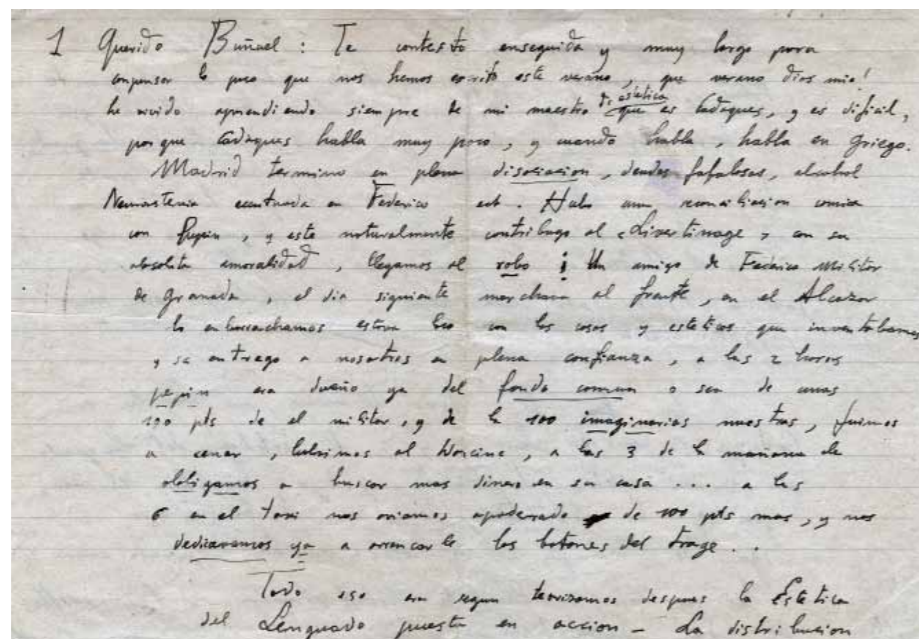 1 Querido Buñuel: Te contesto enseguida y muy largo para
conpensar lo poco que nos hemos escrito este verano, que verano dios mio!
he vivido aprendiendo siempre de mi maestro de estetica que es Cadaques, y es dificil,
porque Cadaques habla muy poco, y cuando habla, habla en griego.
Madrid termino en plena disociacion, deudas fafulosas, alcohol
Neurastenia en Federico ect. Hubo una reconciliacion comica
con Pepin, y este naturalmente contribuyo al «Livertinage» con su
absoluta amoralidad, llegamos al robo ¡ Un amigo de Federico militar
de Granada, el dia siguiente marchava al frente, en el Alcazar
lo enborrachamos estava loco con las cosas y esteticas que inventabamos
y se entrego a nosotros en plena confianza, a las 2 horas
pepin era dueño ya del fondo comun o sea de unas
100 pts de el militar, y de la 100 imaginarias nuestras, fuimos
a cenar, al , a las 3 de la mañana le
obligamos a buscar mas dinero en su casa ... a las
6 en el taxi nos aviamos apoderado de 100 pts mas, y nos
dedicavamos ya a arrancarle los botones del trage..
Todo eso era segun teorizamos despues la Estetica
del Lenguado puesta en accion – La distribucion